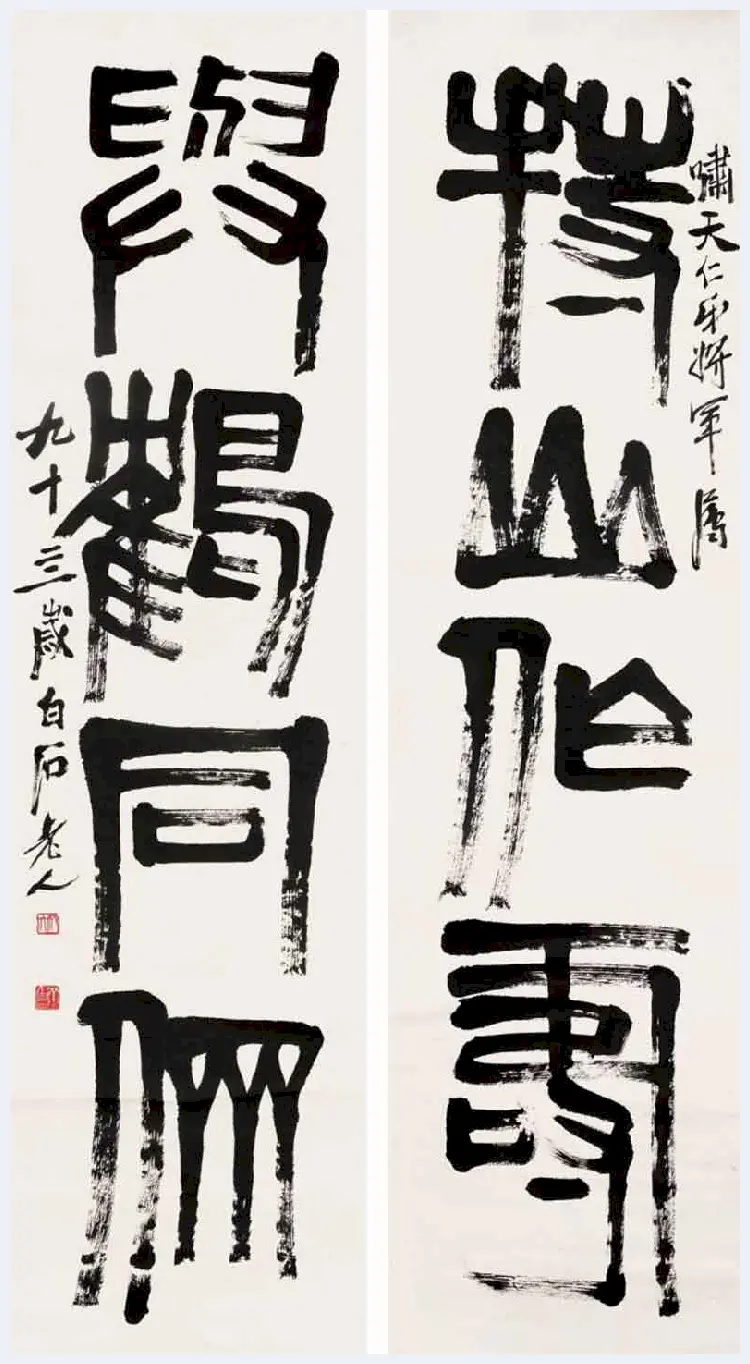 嘯天仁弟將軍屬
持山作壽
與鶴同儕
九十三歲白石老人